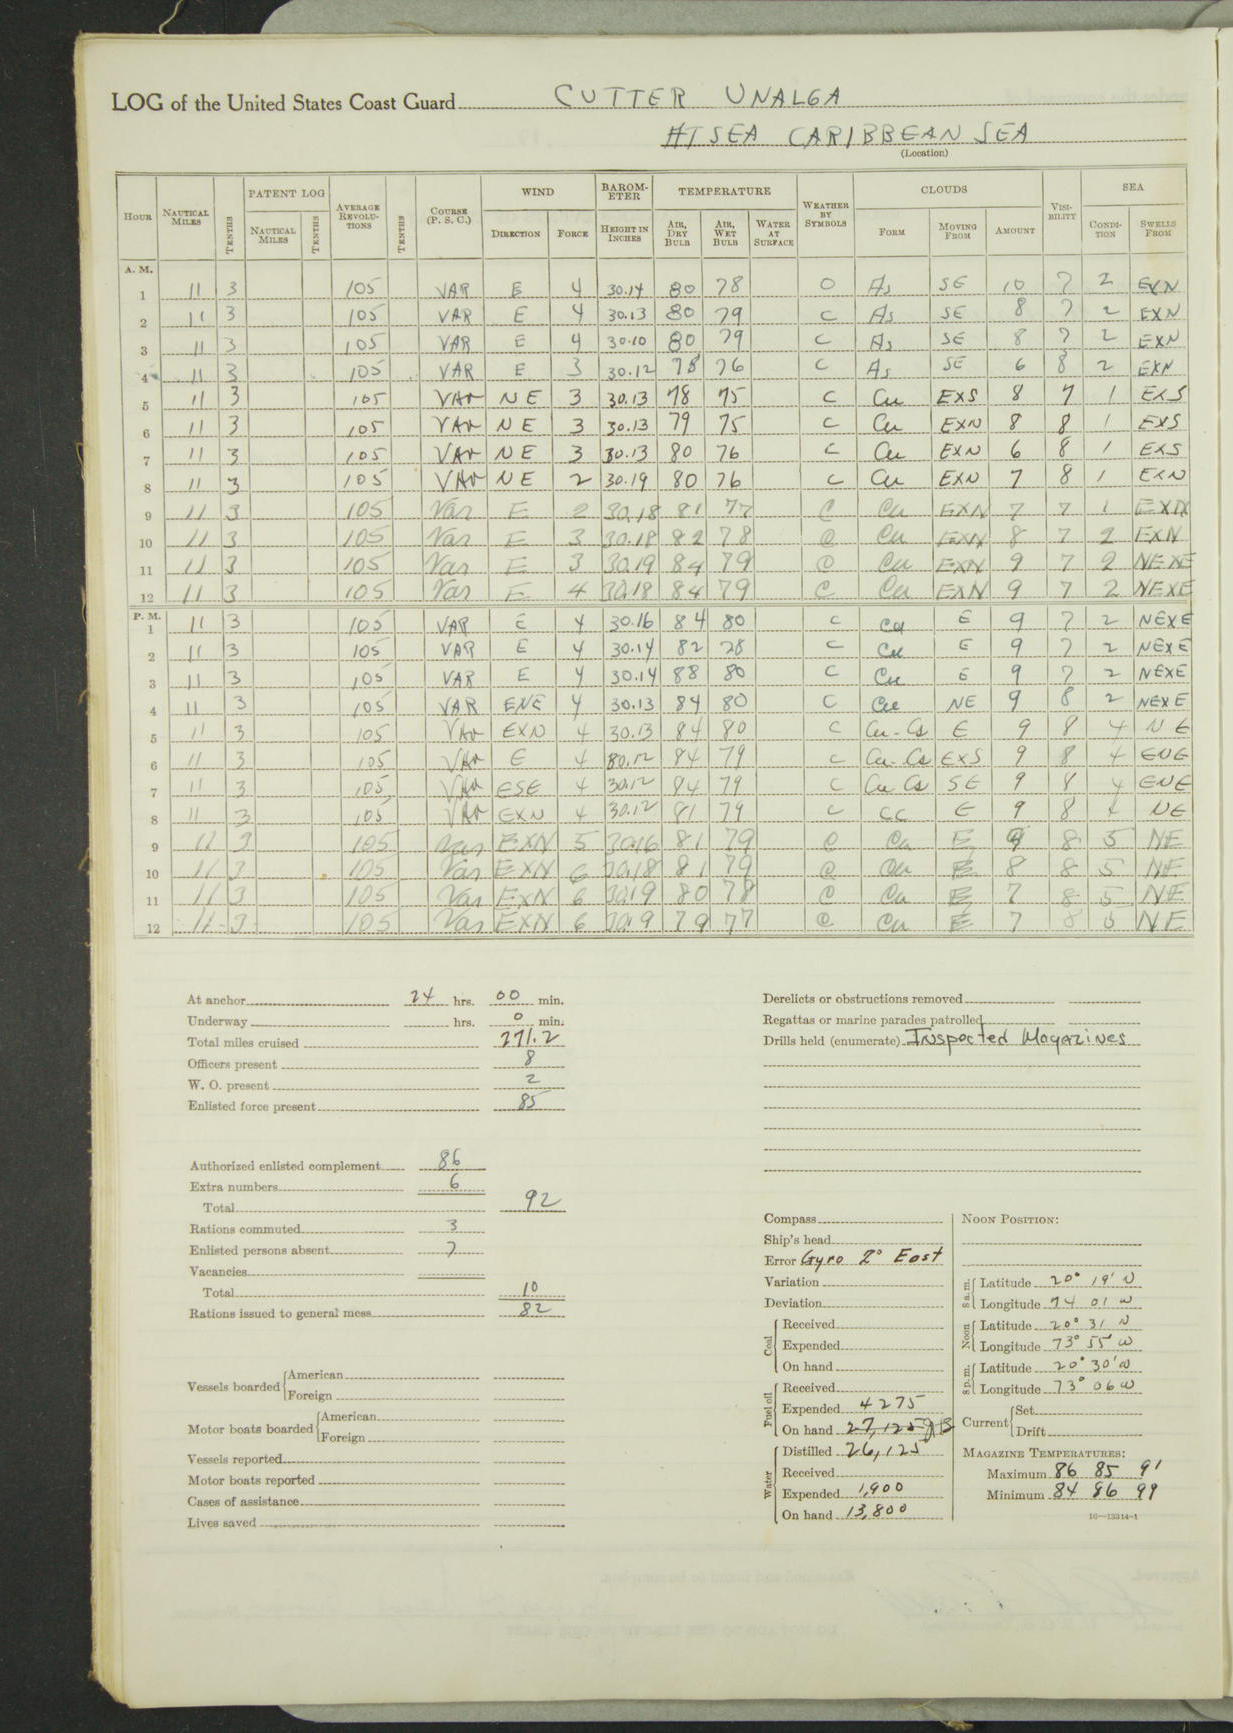 LOG of the United States Coast Guard CUTTER UNALGA
AT SEA CARIBBEAN SEA
(Location)
HOUR NAUTICAL MILES TENTHS PATENT LOG NAUTICAL MILES TENTHS AVERAGE REVOLUTIONS TENTHS COURSE (P. S. C.) WIND DIRECTION FORCE BAROMETER HEIGHT IN INCHES TEMPERATURE AIR, DRY BULB AIR, WET BULB WATER AT SURFACE WEATHER BY SYMBOLS CLOUDS FORM MOVING FROM AMOUNT VISIBILITY SEA CONDITION SWELLS FROM
A. M.
1 11 3 105 VAR E 4 30.14 80 78 O As SE 10 7 2 EXN
2 11 3 105 VAR E 4 30.13 80 79 C As SE 8 7 2 EXN
3 11 3 105 VAR E 4 30.10 80 79 C As SE 8 7 2 EXN
4 11 3 105 VAR E 3 30.12 78 76 C As SE 6 8 2 EXN
5 11 3 105 VAr NE 3 30.13 78 75 C Cu EXS 8 7 1 EXS
6 11 3 105 VAr NE 3 30.13 79 75 C Cu EXN 8 8 1 EXS
7 11 3 105 VAr NE 3 30.13 80 76 C Cu EXN 6 8 1 EXS
8 11 3 105 VAr NE 2 30.19 80 76 C Cu EXN 7 8 1 EXN
9 11 3 105 Var E 2 30.18 81 77 C Cu EXN 7 7 1 EXN
10 11 3 105 Var E 3 30.18 82 78 C Cu EXN 8 7 2 EXN
11 11 3 105 Var E 3 30.19 84 79 C Cu EXN 9 7 2 NEXE
12 11 3 105 Var E 4 30.18 84 79 C Cu EXN 9 7 2 NEXE
P. M.
1 11 3 105 VAR E 4 30.16 84 80 C Cu E 9 7 2 NEXE
2 11 3 105 VAR E 4 30.14 82 78 C Cu E 9 7 2 NEXE
3 11 3 105 VAR E 4 30.14 88 80 C Cu E 9 7 2 NEXE
4 11 3 105 VAR ENE 4 30.13 84 80 C Cu NE 9 8 2 NEXE
5 11 3 105 VAr EXN 4 30.13 84 80 C Cu-Cs E 9 8 4 NE
6 11 3 105 VAr E 4 30.12 84 79 C Cu-Cs EXS 9 8 4 ENE
7 11 3 105 VAr ESE 4 30.12 84 79 C Cu Cs SE 9 8 4 ENE
8 11 3 105 VAr EXN 4 30.12 81 79 C CC E 9 8 4 NE
9 11 3 105 Var EXN 5 30.16 81 79 C Cu E 9 8 5 NE
10 11 3 105 Var EXN 6 30.18 81 79 C Cu E 8 8 5 NE
11 11 3 105 Var EXN 6 30.19 80 78 C Cu E 7 8 5 NE
12 11 3 105 Var EXN 6 30.19 79 77 C Cu E 7 8 5 NE
At anchor 24 hrs. 00 min.
Underway hrs. 0 min.
Total miles cruised 271.2
Officers present 8
W. O. present 2
Enlisted force present 85
Authorized enlisted complement 86
Extra numbers 6
Total 92
Rations commuted 3
Enlisted persons absent 7
Vacancies
Total 10
Rations issued to general mess 82
Vessels boarded American
Foreign
Motor boats boarded American
Foreign
Vessels reported
Motor boats reported
Cases of assistance
Lives saved
Derelicts or obstructions removed
Regattas or marine parades patrolled
Drills held (enumerate) Inspected Magazines
Compass
Ship's head
Error Gyro 2° East
Variation
Deviation
Coal Received
Expended
On hand
Fuel oil Received
Expended 4275
On hand 27,125
Water Distilled 26,125
Received
Expended 1,900
On hand 13,800
NOON POSITION:
8 a.m. Latitude 20° 19' N
Longitude 74 01 W
Noon Latitude 20° 31 N
Longitude 73° 55' W
8 p.m. Latitude 20° 30' N
Longitude 73° 06 W
Current Set
Drift
MAGAZINE TEMPERATURES:
Maximum 86 85 91
Minimum 84 86 99
16—13314-1